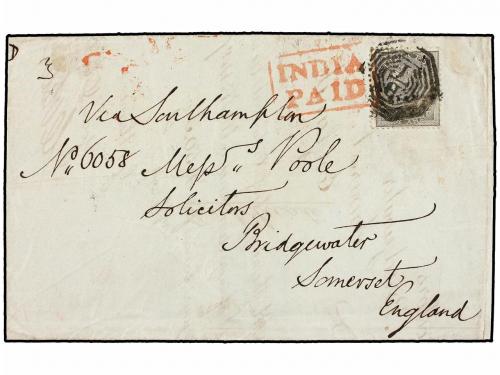 INDIA
PAID
Via Southampton
No. 6058 Messrs Poole
Solicitors
Bridgewater
Somerset
England